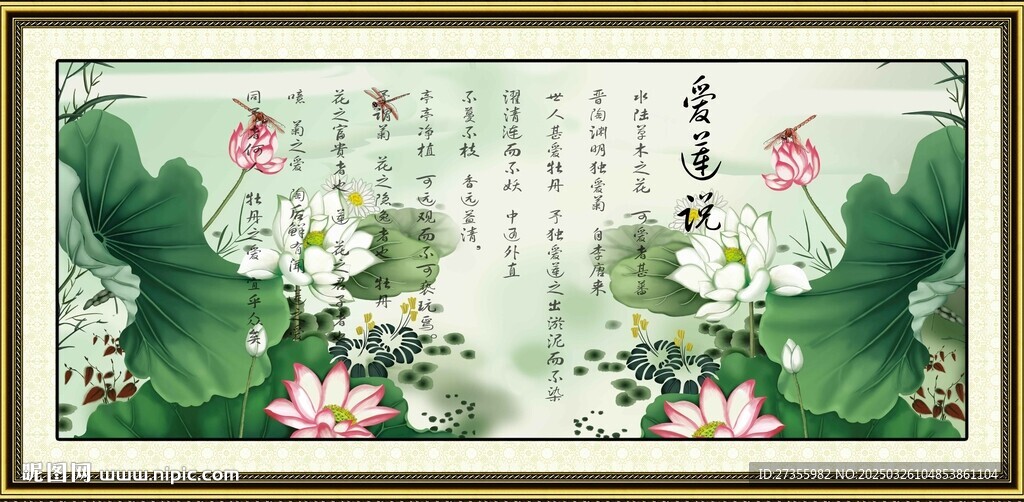 爱莲说
水陆草木之花 可爱者甚蕃
晋陶渊明独爱菊 自李唐来
世人甚爱牡丹 予独爱莲之出淤泥而不染
濯清涟而不妖 中通外直
不蔓不枝 香远益清，
亭亭净植 可远观而不可亵玩焉。
谓菊 花之隐逸者也 牡丹
花之富贵者也 莲 花之君子者
噫 菊之爱 陶后鲜有闻
同 者何 牡丹之爱 宜乎众矣
昵图网 www.nipic.com
ID:27355982 NO:20250326104853861104